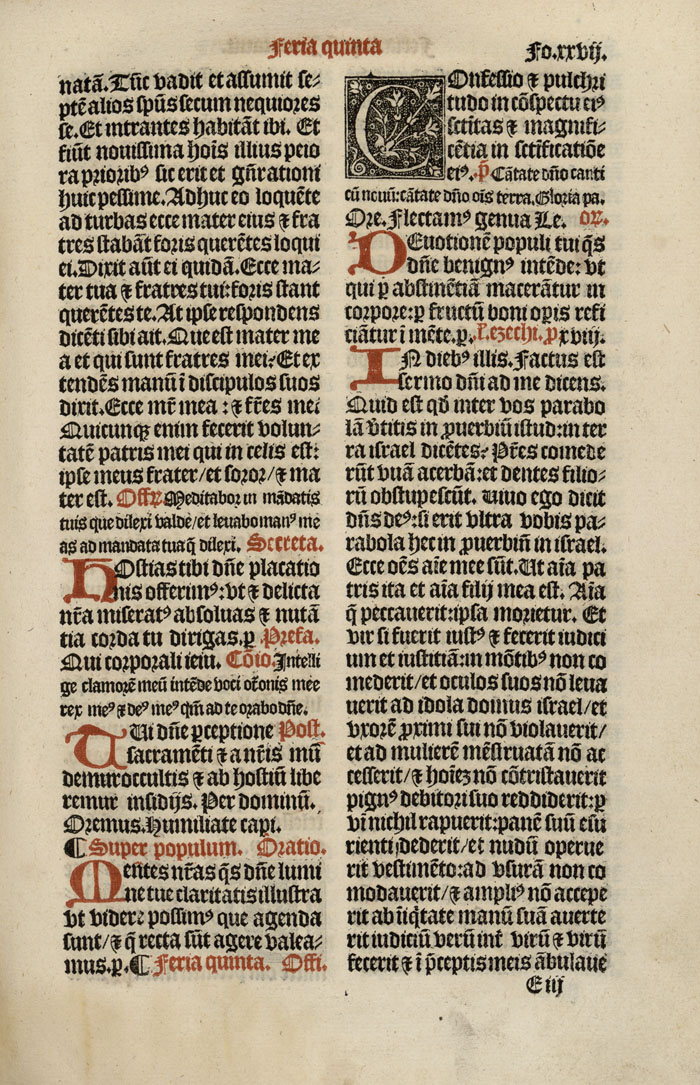 Feria quinta
Fo.xxvij.
natã. Tũc vadit et assumit se⸗
ptẽ alios spũs secum nequiores
se. Et intrantes habitãt ibi. Et
fiũt nouissima hoĩs illius peio
ra prioribꝰ sic erit et gñrationi
huic pessime. Adhuc eo loquẽte
ad turbas ecce mater eius ⁊ fra
tres stabãt foris querẽtes loqui
ei. Dixit aũt ei quidã. Ecce ma⸗
ter tua ⁊ fratres tui: foris stant
querẽtes te. At ipse respondens
dicẽti sibi ait. Que est mater me
a et qui sunt fratres mei? Et ex
tendẽs manũ ĩ discipulos suos
dixit. Ecce mr̃ mea: ⁊ fr̃es mei
Quicunqꝫ enim fecerit volun⸗
tatẽ patris mei qui in celis est:
ipse meus frater/et soror/⁊ ma
ter est. Offr̃ Meditabor in mãdatis
tuis que dilexi valde/et leuabo manꝰ me
as ad mandata tua q̃ dilexi. Secreta.
HOstias tibi dñe placatio
nis offerimꝰ: vt ⁊ delicta
nr̃a miseratꝰ absoluas ⁊ nutã
tia corda tu dirigas. ꝑ Prefa.
Qui corporali ieiu. Cõio. Intelli
ge clamorẽ meũ intẽde voci or̃onis mee
rex meꝰ ⁊ deꝰ meꝰ qm̃ ad te orabo dñe.
TUi dñe ꝑceptione Post.
sacramẽti ⁊ a nr̃is mũ
demur occultis ⁊ ab hostiũ libe
remur insidijs. Per dominũ.
Oremus. Humiliate capi.
¶ Super populum. Oratio.
MEntes nr̃as q̃s dñe lumi
ne tue claritatis illustra
vt videre possimꝰ que agenda
sunt/⁊ q̃ recta sũt agere valea⸗
mus. ꝑ. ¶ Feria quinta. Offi.
COnfessio ⁊ pulchri
tudo in cõspectu eiꝰ
sctĩtas ⁊ magnifi⸗
cẽtia in sctĩficatiõe
eiꝰ. p̃ Cãtate dño canti
cũ nouũ: cãtate dño oĩs terra. Gloria pa.
Ore. Flectamꝰ genua Le. or.
DEuotionẽ populi tui q̃s
dñe benignꝰ intẽde: vt
qui ꝑ abstinẽtiã macerãtur in
corpore: ꝑ fructũ boni oꝑis refi
ciãtur ĩ mẽte. ꝑ. l. ezechi. ꝓ xviij.
IN diebꝰ illis. Factus est
sermo dñi ad me dicens.
Quid est qð inter vos parabo
lã v̾titis in ꝓuerbiũ istud: in ter
ra israel dicẽtes? Pr̃es comede
rũt vuã acerbã: et dentes filio⸗
rũ obstupescũt. Uiuo ego dicit
dñs deꝰ: si erit vltra vobis pa⸗
rabola hec in ꝓuerbiũ in israel.
Ecce oẽs aĩe mee sũt. Ut aĩa pa
tris ita et aĩa filij mea est. Aĩa
q̃ peccauerit: ipsa morietur. Et
vir si fuerit iustꝰ ⁊ fecerit iudici
um et iustitiã: in mõtibꝰ non co
mederit/et oculos suos nõ leua
uerit ad idola domus israel/et
vxorẽ ꝓximi sui nõ violauerit/
et ad mulierẽ mẽstruatã nõ ac
cesserit/⁊ hoĩeꝫ nõ cõtristauerit
pignꝰ debitori suo reddiderit: ꝑ
vĩ nichil rapuerit: panẽ suũ esu
rienti dederit/et nudũ operue
rit vestimẽto: ad vsurã non co
modauerit/⁊ ampliꝰ nõ accepe
rit ab iniq̃tate manũ suã auerte
rit iudiciũ verũ int̾ virũ ⁊ virũ
fecerit ⁊ ĩ p̃ceptis meis ãbulaue
E iij